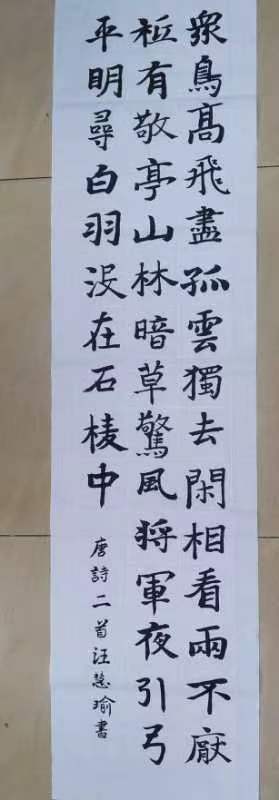 衆鳥髙飛盡孤雲獨去閑相看兩不厭
祗有敬亭山林暗草驚風將軍夜引弓
平明尋白羽沒在石棱中
唐詩二首汪慧瑜書